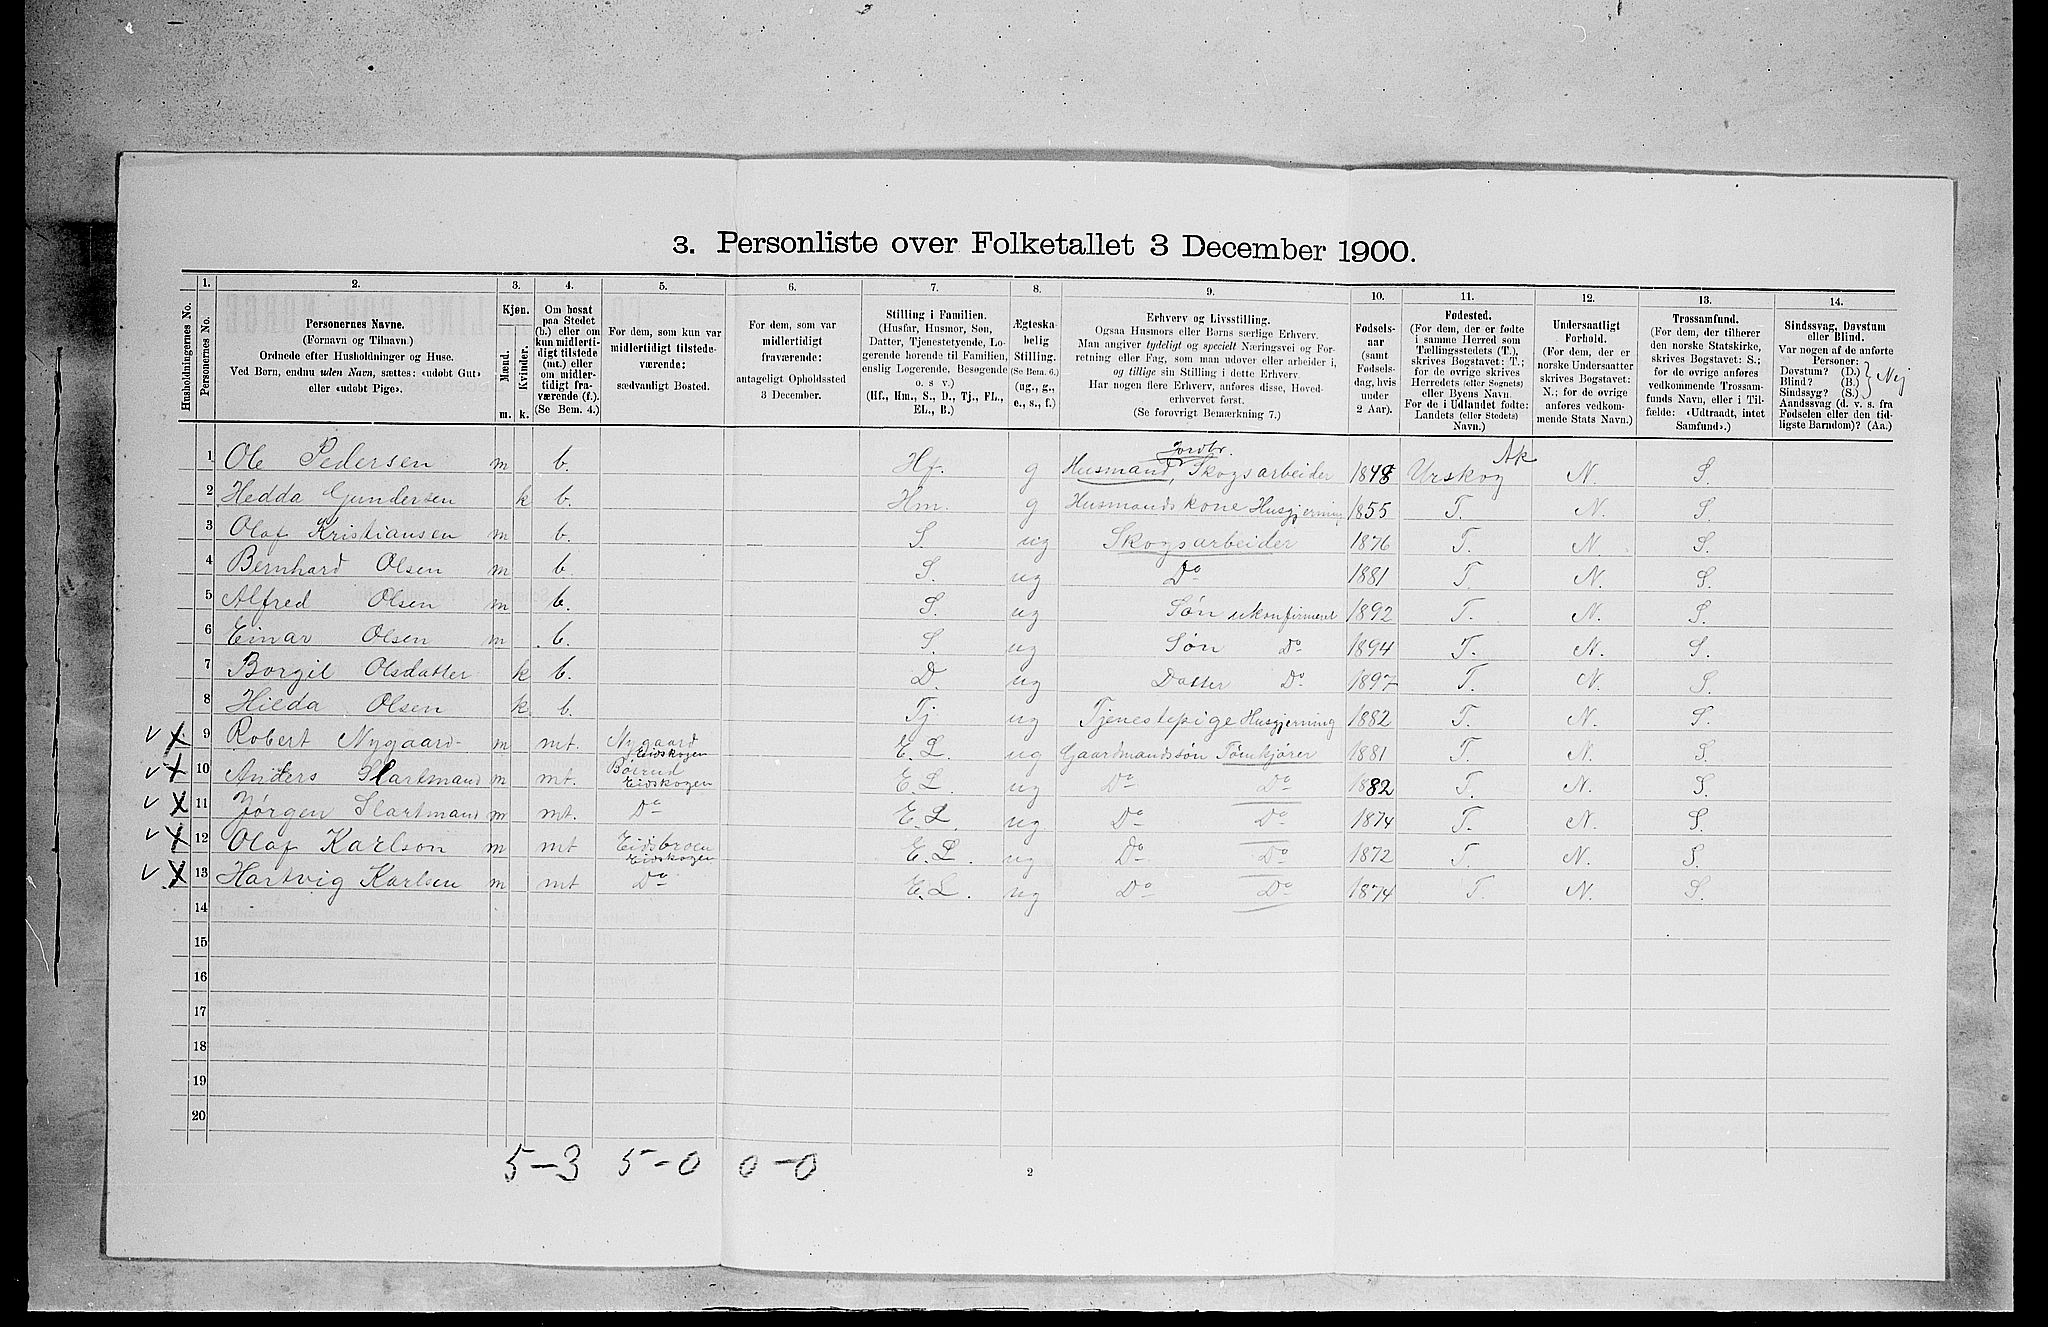 3. Personliste over Folketallet 3 December 1900.
Husholdningernes No.
1. Personernes No.
2. Personernes Navne.
(Fornavn og Tilnavn.)
Ordnede efter Husholdninger og Huse.
Ved Børn, endnu uden Navn, sættes: «udøbt Gut»
eller «udøbt Pige».
3. Kjøn.
Mænd. Kvinder.
m. k.
4. Om bosat
paa Stedet
(b.) eller om
kun midlerti-
digt tilstede
(mt.) eller
om midler-
tidigt fra-
værende (f.).
(Se Bem. 4.)
5. For dem, som kun var
midlertidigt tilstede-
værende:
sædvanligt Bosted.
6. For dem, som var
midlertidigt
fraværende:
antageligt Opholdssted
3 December.
7. Stilling i Familien.
(Husfar, Husmor, Søn,
Datter, Tjenestetyende, Lo-
gerende hørende til Familien,
enslig Logerende, Besøgende
o. s v.)
(Hf., Hm., S., D., Tj., FL.,
EL., B.)
8. Ægteska-
belig
Stilling.
(Se Bem. 6.)
(ug., g.,
e., s., f.)
9. Erhverv og Livsstilling.
Ogsaa Husmors eller Børns særlige Erhverv.
Man angiver tydeligt og specielt Næringsvei og For-
retning eller Fag, som man udøver eller arbeider i,
og tillige sin Stilling i dette Erhverv.
Har nogen flere Erhverv, anføres disse, Hoved-
erhvervet først.
(Se forøvrigt Bemærkning 7.)
10. Fødsels-
aar
(samt
Fødsels-
dag, hvis
under
2 Aar).
11. Fødested.
(For dem, der er fødte
i samme Herred som
Tællingsstedets (T.),
skrives Bogstavet: T.;
for de øvrige skrives
Herredets (eller Sognets)
eller Byens Navn.
For de i Udlandet fødte:
Landets (eller Stedets)
Navn.)
12. Undersaatligt
Forhold.
(For dem, der er
norske Undersaatter
skrives Bogstavet:
N.; for de øvrige
anføres vedkom-
mende Stats Navn.)
13. Trossamfund.
(For dem, der tilhører
den norske Statskirke,
skrives Bogstavet: S.;
for de øvrige anføres
vedkommende Trossam-
funds Navn, eller i Til-
fælde: «Udtraadt, intet
Samfund».)
14. Sindssvag, Døvstum
eller Blind.
Var nogen af de anførte
Personer:
Døvstum? (D.)
Blind? (B.)
Sindssyg? (S.)
Nej
Aandssvag (d. v. s. fra
Fødselen eller den tid-
ligste Barndom)? (Aa.)
Jordbr. Ak
1 Ole Pedersen m b. Hf. g Husmand, Skogsarbeider 1848 Urskog N. S.
2 Hedda Gundersen k b. Hm. g Husmandskone Husgjerning 1855 T. N. S.
3 Olaf Kristiansen m b. S. ug Skogsarbeider 1876 T. N. S.
4 Bernhard Olsen m b S. ug Do 1881 T. N. S.
5 Alfred Olsen m b. S. ug Søn ukonfirmeret 1892 T. N. S.
6 Einar Olsen m b. S. ug Søn Do 1894 T. N. S.
7 Borgil Olsdatter k b. D. ug Datter Do 1897 T. N. S.
8 Hilda Olsen k b. Tj ug Tjenestepige Husgjerning 1882 T. N. S.
v X 9 Robert Nygaard m mt. Nygaard Eidskogen E. L. ug Gaardmandssøn Tømkjører 1881 T. N. S.
v X 10 Anders Slartmand m mt. Eidskogen E. L. ug Do Do 1882 T. N. S.
v X 11 Jørgen Slartmand m mt. Do E. L. ug Do Do 1874 T. N. S.
v X 12 Olaf Karlson m mt Eidsbroen Eidskogen E. L. ug Do Do 1872 T. N. S.
v X 13 Hartvig Karlsen m mt Do E. L. ug Do Do 1874 T. N. S.
14
15
16
17
18
19
20
5-3 5-0 0-0
2